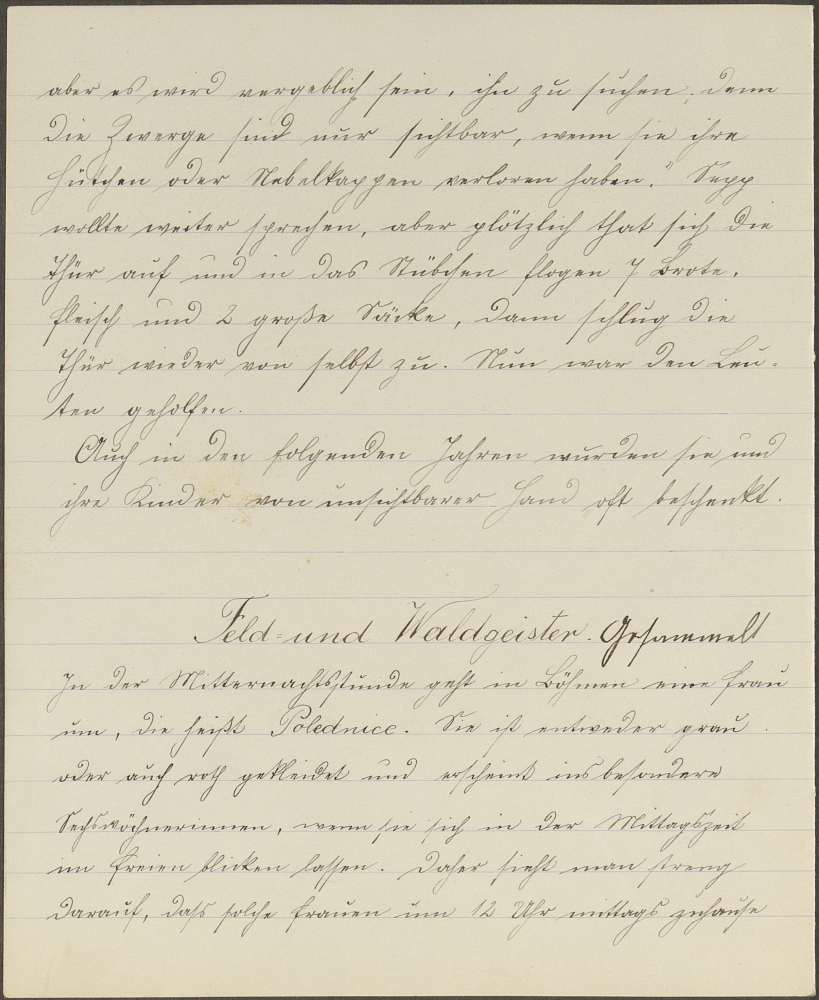 aber es wird vergeblich sein, ihn zu suchen; denn
die Zwerge sind nur sichtbar, wenn sie ihre
Hütchen oder Nebelkappen verloren haben." Sepp
wollte weiter sprechen, aber plötzlich that sich die
Thür auf und in das Stübchen flogen 7 Brote,
Fleisch und 2 große Säcke, dann schlug die
Thür wieder von selbst zu. Nun war den Leu-
ten geholfen.
Auch in den folgenden Jahren wurden sie und
ihre Kinder von unsichtbarer Hand oft beschenkt.
Feld- und Waldgeister. Gesammelt
In der Mitternachtsstunde geht in Böhmen eine Frau
um, die heißt Polednice. Sie ist entweder grau
oder auch roth gekleidet und erscheint insbesondere
Sechswöchnerinnen, wenn sie sich in der Mittagszeit
im Freien blicken lassen. Daher sieht man streng
darauf, dass solche Frauen um 12 Uhr mittags zuhause